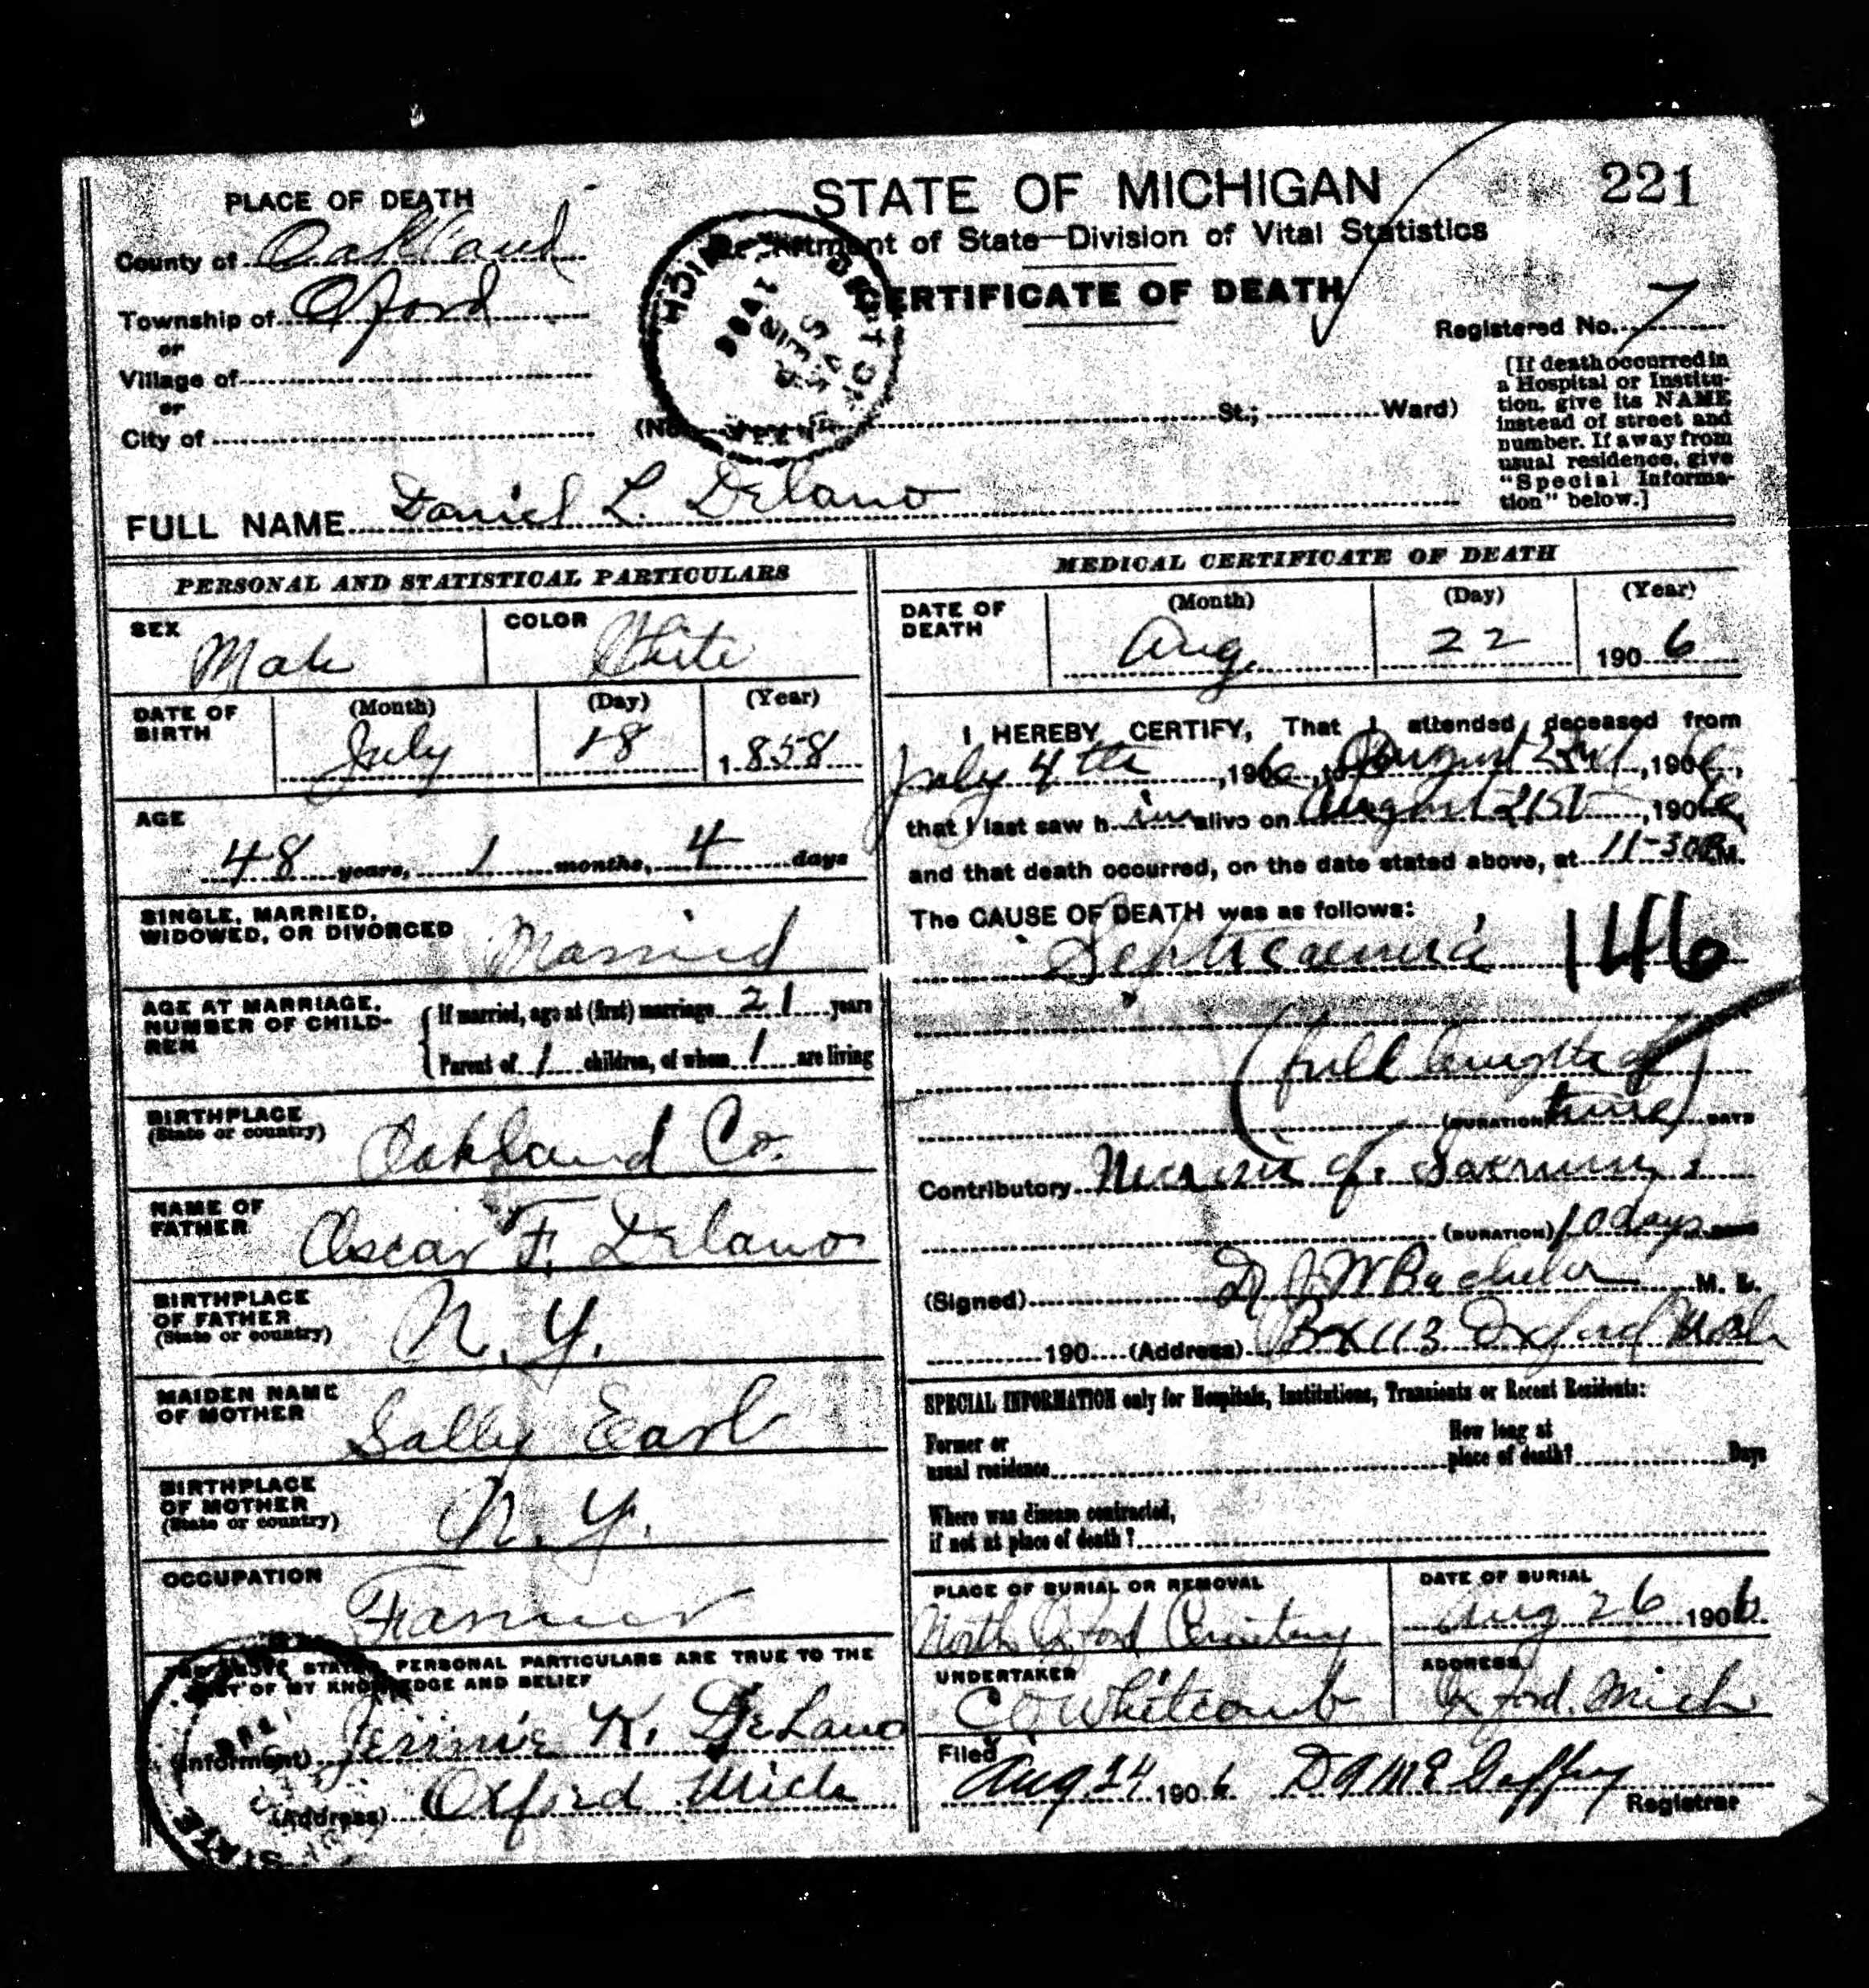 221
PLACE OF DEATH
STATE OF MICHIGAN
Department of State—Division of Vital Statistics
CERTIFICATE OF DEATH
County of Oakland
Township of Oxford
or
Village of
or
City of
Registered No. 7
(No. St.; Ward)
[If death occurred in
a Hospital or Institu-
tion, give its NAME
instead of street and
number. If away from
usual residence, give
"Special Informa-
tion" below.]
FULL NAME Daniel L. Delano
PERSONAL AND STATISTICAL PARTICULARS
SEX Male
COLOR White
DATE OF BIRTH
(Month) (Day) (Year)
July 18 1858
AGE
48 years, 1 months, 4 days
SINGLE, MARRIED,
WIDOWED, OR DIVORCED Married
AGE AT MARRIAGE,
NUMBER OF CHILD-
REN
If married, age at (first) marriage 21 years
Parent of 1 children, of whom 1 are living
BIRTHPLACE
(State or country) Oakland Co.
NAME OF
FATHER Oscar F. Delano
BIRTHPLACE
OF FATHER
(State or country) N. Y.
MAIDEN NAME
OF MOTHER Sally Earl
BIRTHPLACE
OF MOTHER
(State or country) N. Y.
OCCUPATION
Farmer
THE ABOVE STATED PERSONAL PARTICULARS ARE TRUE TO THE
BEST OF MY KNOWLEDGE AND BELIEF
(Informant) Jennie K. DeLano
(Address) Oxford Mich
MEDICAL CERTIFICATE OF DEATH
DATE OF
DEATH
(Month) (Day) (Year)
Aug. 22 1906
I HEREBY CERTIFY, That I attended deceased from
July 4th, 1906, to August, 1906,
that I last saw him alive on August 21st, 1906,
and that death occurred, on the date stated above, at 11-30 M.
The CAUSE OF DEATH was as follows:
Septicaemia 146
(full length of
(DURATION) time) DAYS
Contributory
(DURATION) 10 days
(Signed) Bachelor M. D.
190 (Address) Bx 113 Oxford Mich
SPECIAL INFORMATION only for Hospitals, Institutions, Transients or Recent Residents:
Former or
usual residence
How long at
place of death? Days
Where was disease contracted,
if not at place of death?
PLACE OF BURIAL OR REMOVAL
North Oxford Cemetery
DATE OF BURIAL
Aug 26 1906
UNDERTAKER
C O Whitcomb
ADDRESS
Oxford, Mich
Filed
Aug 24 1906
Registrar